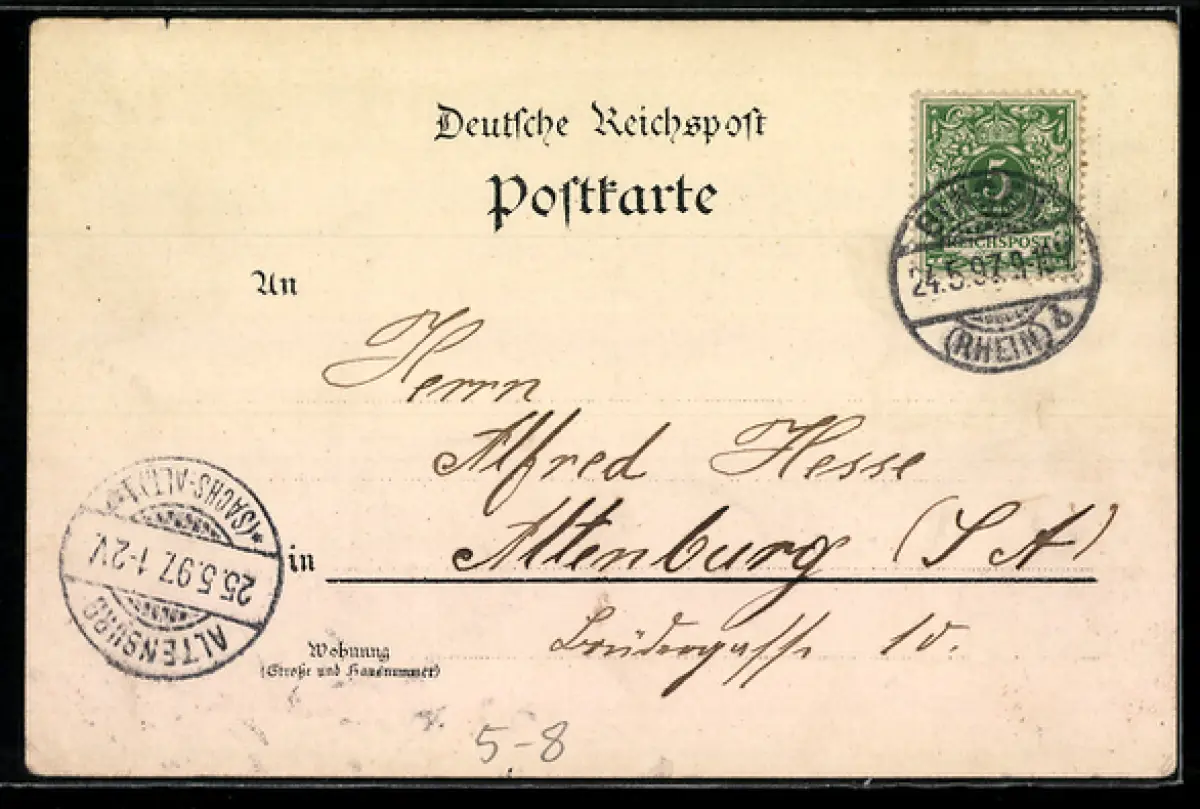 Deutsche Reichspost
Postkarte
5
REICHSPOST
24.5.97. 9-10
(RHEIN)
An
Herrn
Alfred Hesse
in Altenburg (S A)
Wohnung
(Straße und Hausnummer)
Brüdergasse 10.
*(SACHS-ALT.) 1*
25.5.97. 1-2V.
ALTENBURG
5-8